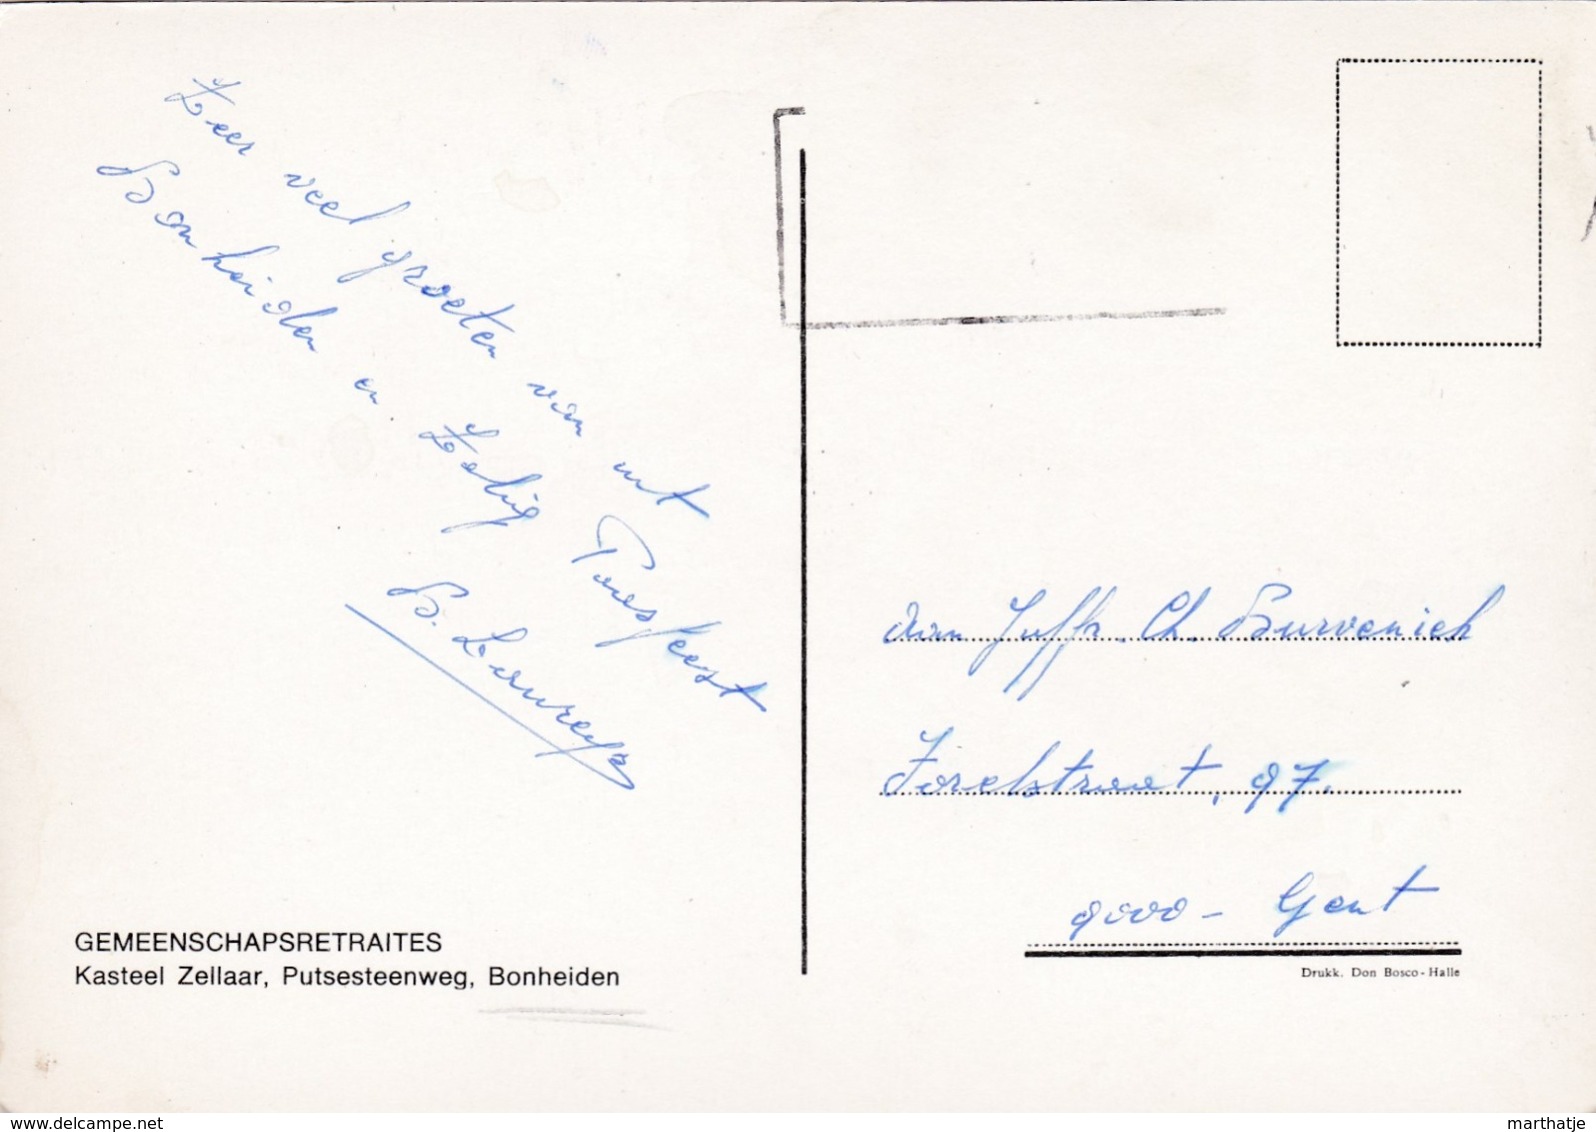 Zeer veel groeten van uit
Bonheiden en Zalig Paasfeest
B. Laureys
GEMEENSCHAPSRETRAITES
Kasteel Zellaar, Putsesteenweg, Bonheiden
aan Juffr. Ch. Burvenich
Forelstraat, 97.
9000 - Gent
Drukk. Don Bosco - Halle
www.delcampe.net
marthatje